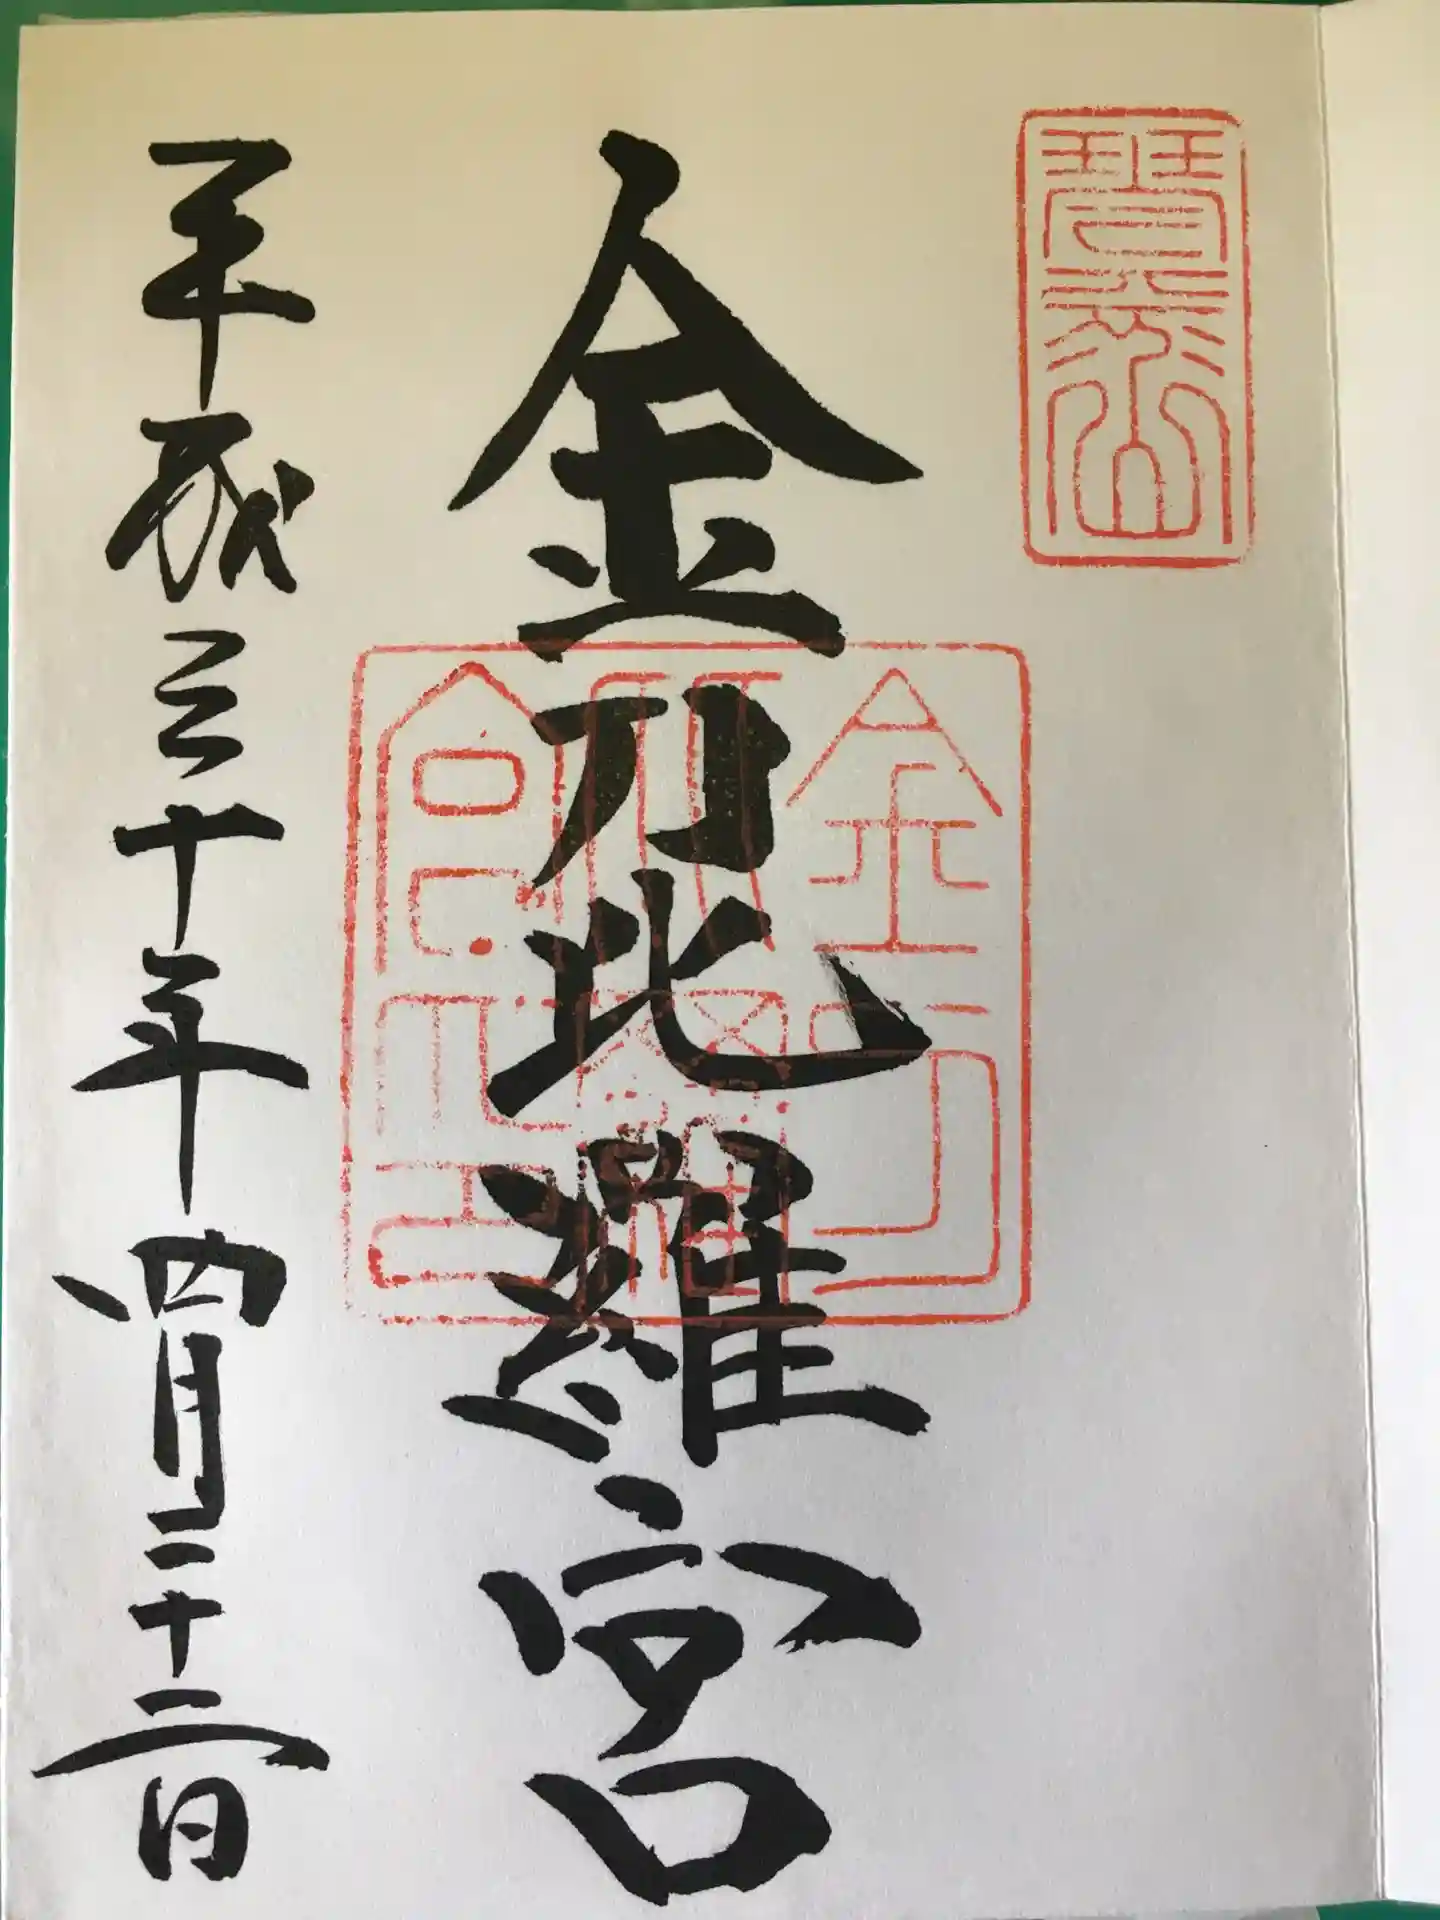 琴平山
金刀比羅宮
金刀
比羅
宮印
平成三十年四月二十二日